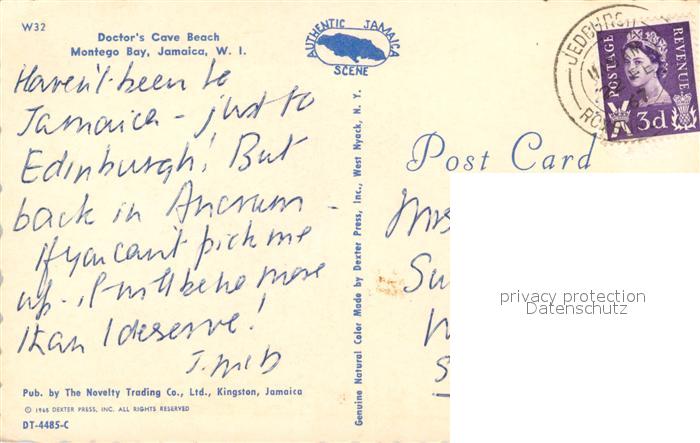 W32
Doctor's Cave Beach
Montego Bay, Jamaica, W. I.
AUTHENTIC JAMAICA
SCENE
JEDBURGH
POSTAGE
REVENUE
3d
Haven't been to
Jamaica - just to
Edinburgh! But
back in Ancrum -
If you can't pick me
up - it will be no more
than I deserve!
Post Card
Mrs
Su
privacy protection
Datenschutz
Genuine Natural Color Made by Dexter Press, Inc., West Nyack, N. Y.
Pub. by The Novelty Trading Co., Ltd., Kingston, Jamaica
© 1965 DEXTER PRESS, INC. ALL RIGHTS RESERVED
DT-4485-C